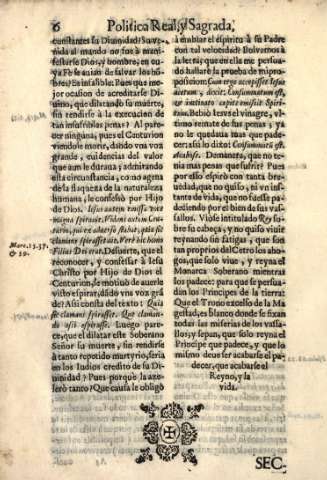 6 Politica Real, y Sagrada,
constantes su Diuinidad? Su ve-
nida al mando no fue à mani-
festarse Dios, y hombre, en cu-
ya Fè se auian de saluar los hõ-
bres? Es infalible. Pues que me-
jor ocasion de acreditarse Di-
uino, que dilatando su muerte,
sin rendirse à la execucion de
tan insufribles penas? Al pare-
cer ninguna; pues el Centurion
viendole morir, dando vna voz
grande, euidencias del valor
que aun le duraua, admirando
esta circunstancia, como agena
de la flaqueza de la naturaleza
humana, le confessò por Hijo
de Dios. Iesus autem emissa voce
magna expirauit. Videns autem Cen-
turio, qui ex aduerso stabat, quia sic
clamans spirasset ait. Verè hic homo
Filius Dei erat. De suerte, que el
reconocer, y confessar à Iesu
Christo por Hijo de Dios el
Centurion, se motiuò de auerle
visto espirar, dãdo vna voz grã
de: Assi consta del texto: Quia
sic clamans spirasset. Que claman-
do assi espirasse. Luego pare-
ce, que el dilatar este Soberano
Señor la muerte, sin rendirse
à tanto repetido martyrio, seria
en los Iudios credito de su Di-
uinidad? Pues porquè la aze-
lerò tanto? Que causa le obligò
Marc. 15. 37.
& 39.
à embiar el espiritu à su Padre
con tal velocidad? Boluamos à
la letra; que en ella me persua-
do hallarè la prueba de mi pro-
posicion: Cum ergo accepisset Iesus
acetum, dixit: Consummatum est,
& inclinato capite emisit Spiri-
tum. Bebiò Iesvs el vinagre, vl-
timo remate de sus penas, y ya
no le quedaua mas que pade-
cer: assi lo dixo: Consummatũ est.
Acabòse. Demanera, que no te-
nia mas penas que sufrir? Pues
por esso espirò con tanta bre-
uedad, que no quiso, ni vn instan-
te de vida, que no fuesse pa-
deciendo por el bien de sus vas-
sallos. Viòse intitulado Rey so-
bre su cabeça, y no quiso viuir
reynando sin fatigas, que son
tan proprios del Cetro los aho-
gos, que solo viue, y reyna el
Monarca Soberano mientras
los padece: para que se persua-
dan los Principes de la tierra:
Que el Trono excelso de la Ma-
gestad, es blanco donde se fixan
todas las miserias de los vassa-
llos; y sepan, que solo reyna el
Principe que padece, y que lo
mismo deue ser acabarse el pa-
decer, que acabarse el
Reyno, y la
vida.
SEC-